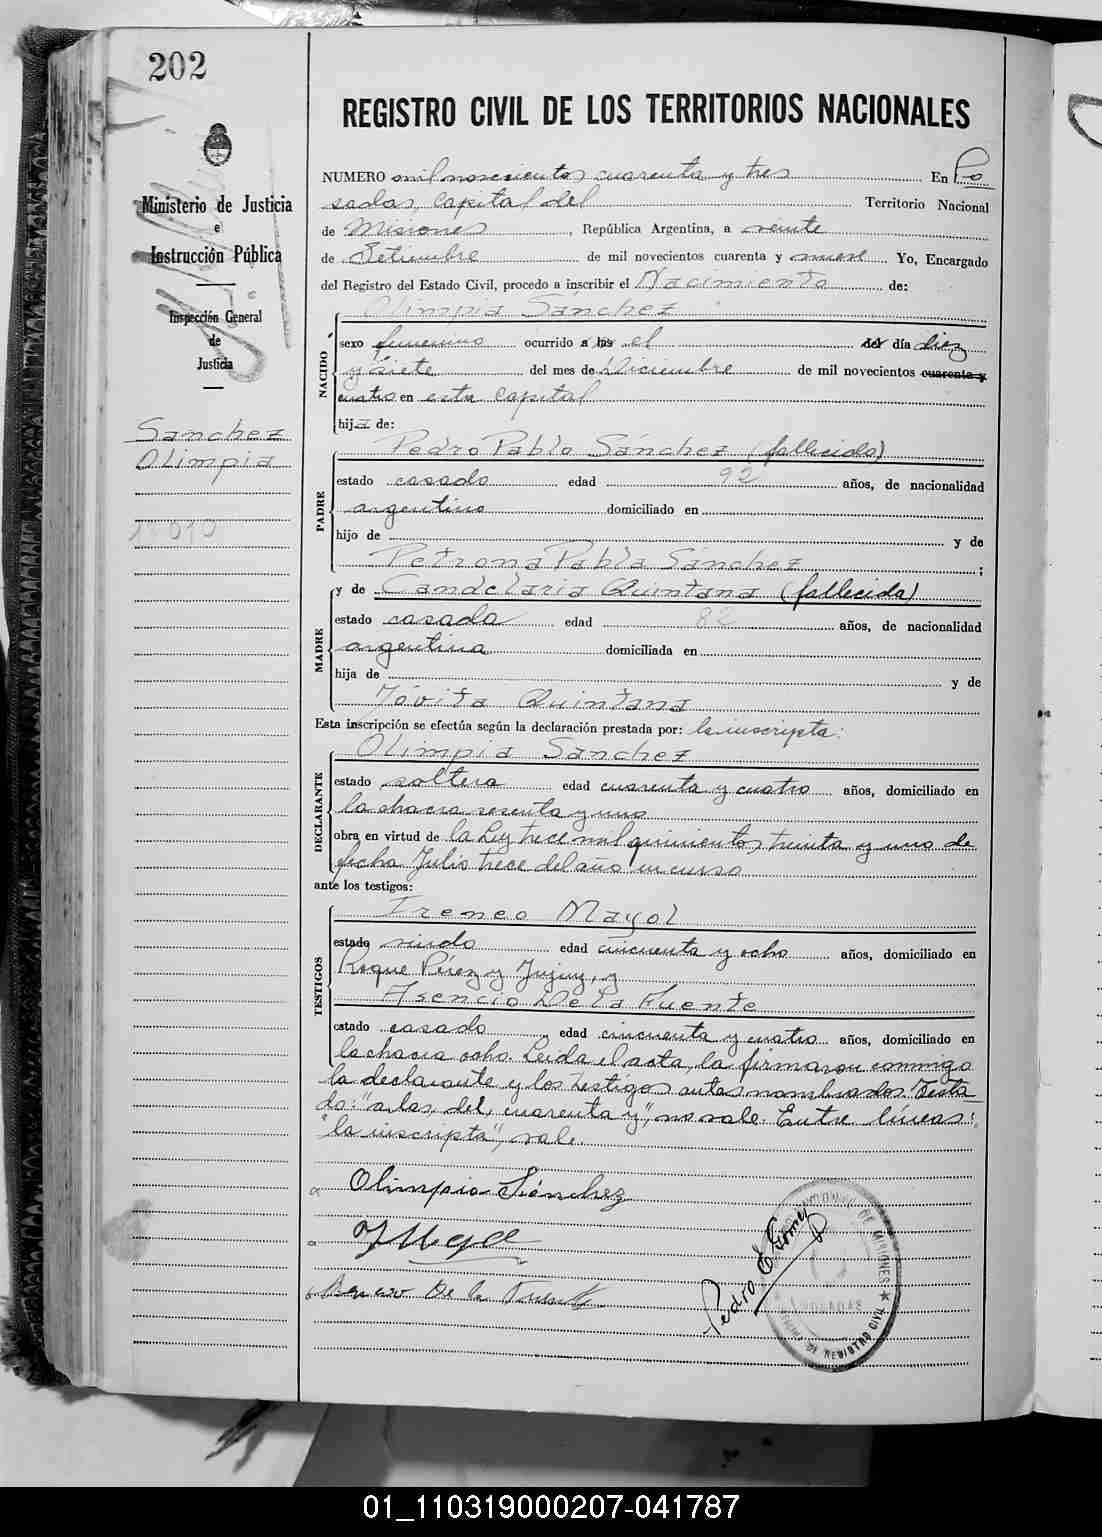 202
REGISTRO CIVIL DE LOS TERRITORIOS NACIONALES
Ministerio de Justicia
e
Instrucción Pública
Inspección General
de
Justicia
Sanchez
Olimpia
NUMERO mil novecientos cuarenta y tres En Po
sadas, Capital del Territorio Nacional
de Misiones, República Argentina, a veinte
de Setiembre de mil novecientos cuarenta y nueve Yo, Encargado
del Registro del Estado Civil, procedo a inscribir el Nacimiento de:
NACIDO
Olimpia Sánchez
sexo femenino ocurrido a las el del día diez
y siete del mes de Diciembre de mil novecientos cuarenta y
cuatro en esta Capital
hija de:
PADRE
Pedro Pablo Sánchez (fallecido)
estado casado edad 92 años, de nacionalidad
argentino domiciliado en
hijo de y de
Petrona Pabla Sánchez ;
MADRE
y de Candelaria Quintana (fallecida)
estado casada edad 82 años, de nacionalidad
argentina domiciliada en
hija de y de
Jóvita Quintana
Esta inscripción se efectúa según la declaración prestada por: la inscripta:
DECLARANTE
Olimpia Sánchez
estado soltera edad cuarenta y cuatro años, domiciliado en
la chacra sesenta y uno
obra en virtud de la Ley trece mil quinientos treinta y uno de
fecha Julio trece del año en curso
ante los testigos:
TESTIGOS
Ireneo Mayol
estado viudo edad cincuenta y ocho años, domiciliado en
Roque Pérez y Jujuy, y
Asencio De la Fuente
estado casado edad cincuenta y cuatro años, domiciliado en
la chacra ocho. Leida el acta, la firmaron conmigo
la declarante y los testigos antes nombrados. Testa
do: "a las, del, cuarenta y", no vale. Entre líneas:
"la inscripta", vale.
Olimpia Sánchez
De la Fuente
Pedro E. Gómez
DE MISIONES
POSADAS
REGISTRO CIVIL
01_110319000207-041787